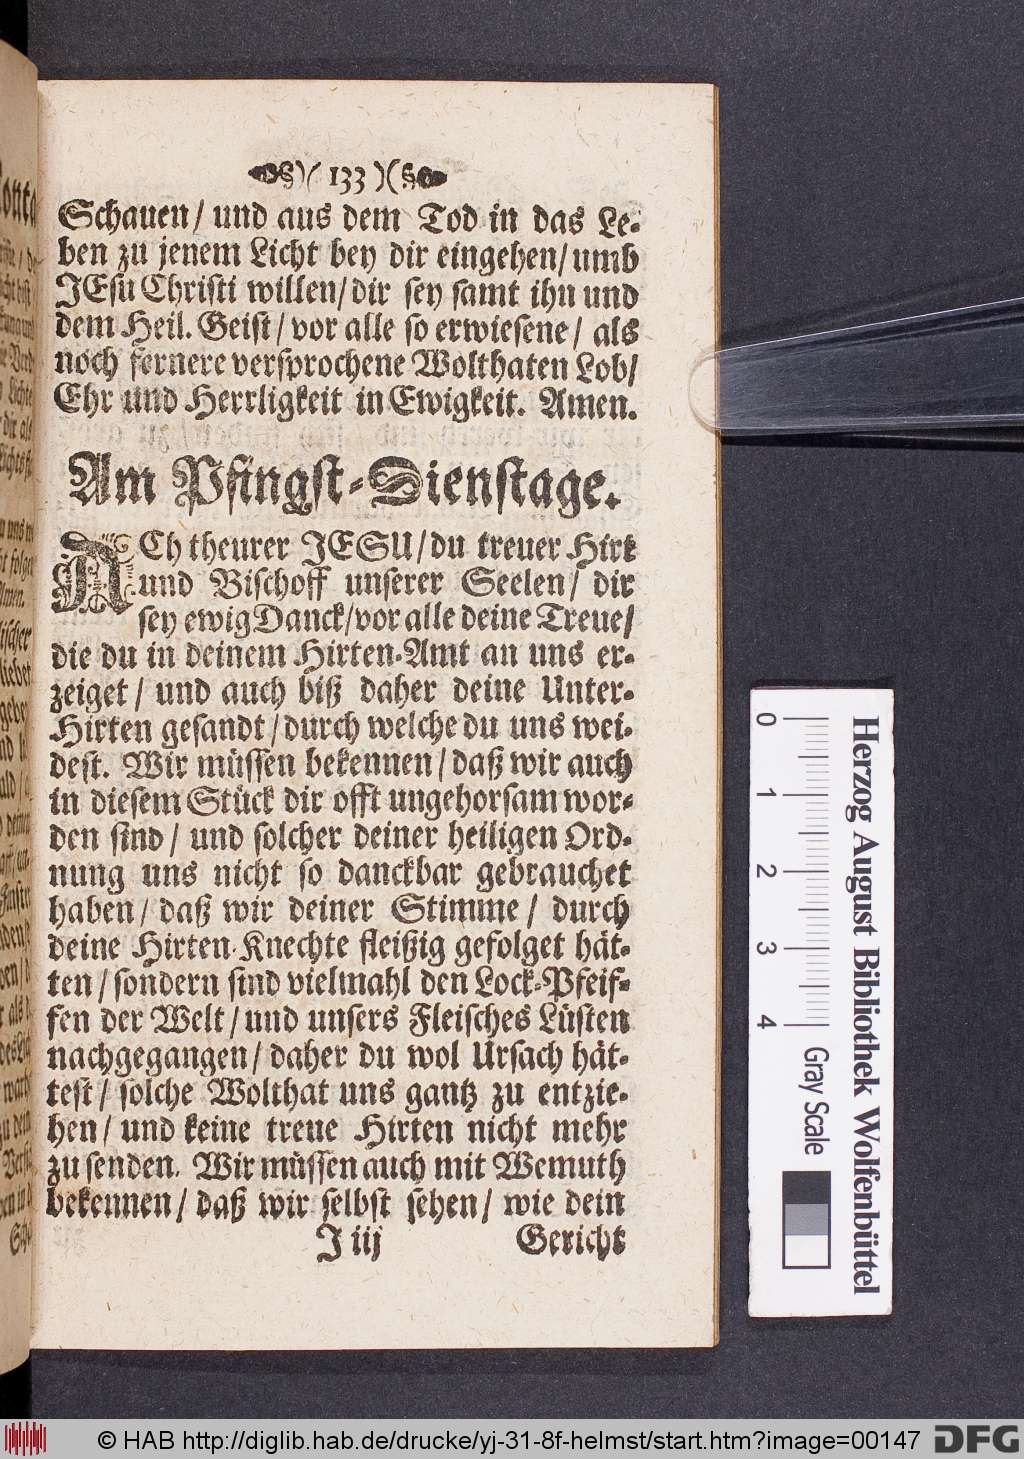 )( 133 )(
Schauen / und aus dem Tod in das Le-
ben zu jenem Licht bey dir eingehen / umb
JEsu Christi willen / dir sey samt ihn und
dem Heil. Geist / vor alle so erwiesene / als
noch fernere versprochene Wolthaten Lob /
Ehr und Herrligkeit in Ewigkeit. Amen.
Am Pfingst-Dienstage.
ACh theurer JESU / du treuer Hirt
und Bischoff unserer Seelen / dir
sey ewig Danck / vor alle deine Treue /
die du in deinem Hirten-Amt an uns er-
zeiget / und auch biß daher deine Unter-
Hirten gesandt / durch welche du uns wei-
dest. Wir müssen bekennen / daß wir auch
in diesem Stück dir offt ungehorsam wor-
den sind / und solcher deiner heiligen Ord-
nung uns nicht so danckbar gebrauchet
haben / daß wir deiner Stimme / durch
deine Hirten-Knechte fleißig gefolget hät-
ten / sondern sind vielmahl den Lock-Pfeif-
fen der Welt / und unsers Fleisches Lüsten
nachgegangen / daher du wol Ursach hät-
test / solche Wolthat uns gantz zu entzie-
hen / und keine treue Hirten nicht mehr
zu senden. Wir müssen auch mit Wemuth
bekennen / daß wir selbst sehen / wie dein
J iij Gericht
Herzog August Bibliothek Wolfenbüttel
0 1 2 3 4 Gray Scale
© HAB http://diglib.hab.de/drucke/yj-31-8f-helmst/start.htm?image=00147 DFG